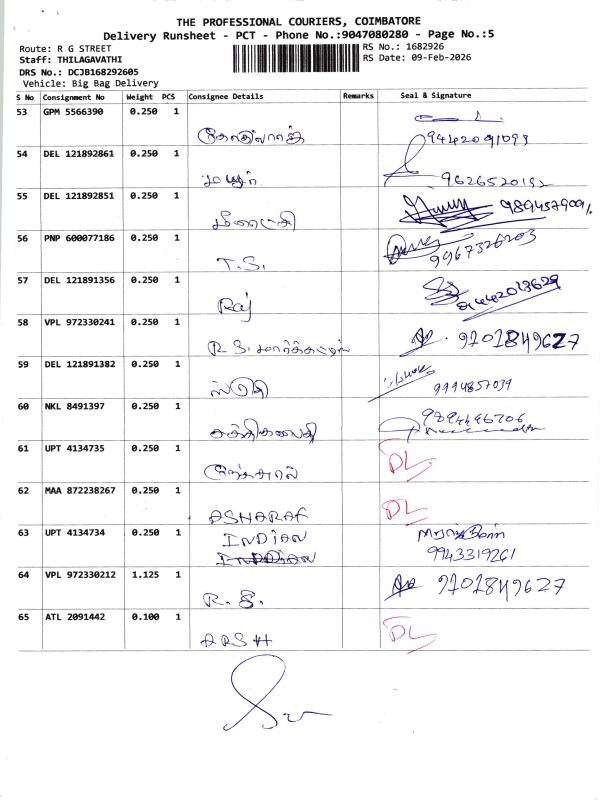 THE PROFESSIONAL COURIERS, COIMBATORE
Delivery Runsheet - PCT - Phone No.:9047080280 - Page No.:5
Route: R G STREET
Staff: THILAGAVATHI
DRS No.: DCJB168292605
Vehicle: Big Bag Delivery
RS No.: 1682926
RS Date: 09-Feb-2026
S No Consignment No Weight PCS Consignee Details Remarks Seal & Signature
53 GPM 5566390 0.250 1
9442091099
54 DEL 121892861 0.250 1
9626520192
55 DEL 121892851 0.250 1
மீனாட்சி
56 PNP 600077186 0.250 1
T.S. 9967326203
57 DEL 121891356 0.250 1
Raj 9442013629
58 VPL 972330241 0.250 1
R.S. 9701849627
59 DEL 121891382 0.250 1
9994857039
60 NKL 8491397 0.250 1
61 UPT 4134735 0.250 1
DL
62 MAA 872238267 0.250 1
DL
ASHARAF
63 UPT 4134734 0.250 1
INDIAN
9943319261
64 VPL 972330212 1.125 1
R.S. 9701849627
65 ATL 2091442 0.100 1
DL
ARSH